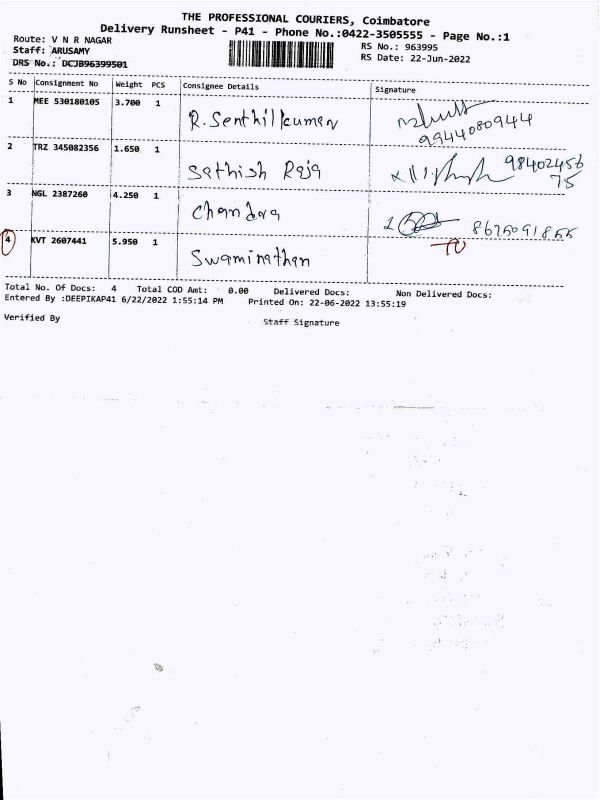 THE PROFESSIONAL COURIERS, Coimbatore
Delivery Runsheet - P41 - Phone No.:0422-3505555 - Page No.:1
Route: V N R NAGAR
RS No.: 963995
Staff: ARUSAMY
RS Date: 22-Jun-2022
DRS No.: DCJB96399501
S No Consignment No Weight PCS Consignee Details Signature
1 MEE 530180105 3.700 1 R.Senthilkumar
9944080944
2 TRZ 345082356 1.650 1 Sathish Raja 98402456
75
3 NGL 2387260 4.250 1 Chandra 8675091855
4 KVT 2607441 5.950 1 Swaminathan
Total No. Of Docs: 4 Total COD Amt: 0.00 Delivered Docs: Non Delivered Docs:
Entered By :DEEPIKAP41 6/22/2022 1:55:14 PM Printed On: 22-06-2022 13:55:19
Verified By Staff Signature